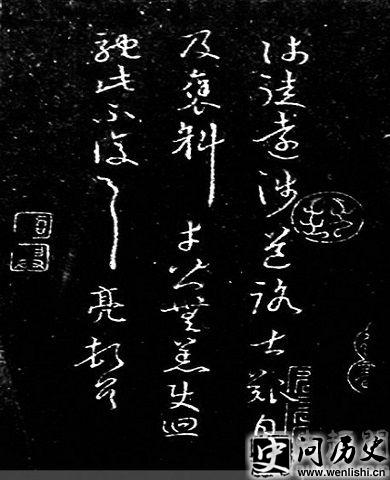 師徒遠涉道路甚艱自
及褒斜幸皆無恙使迴
馳此不復 亮頓首
史 问历史
www.wenlishi.cn